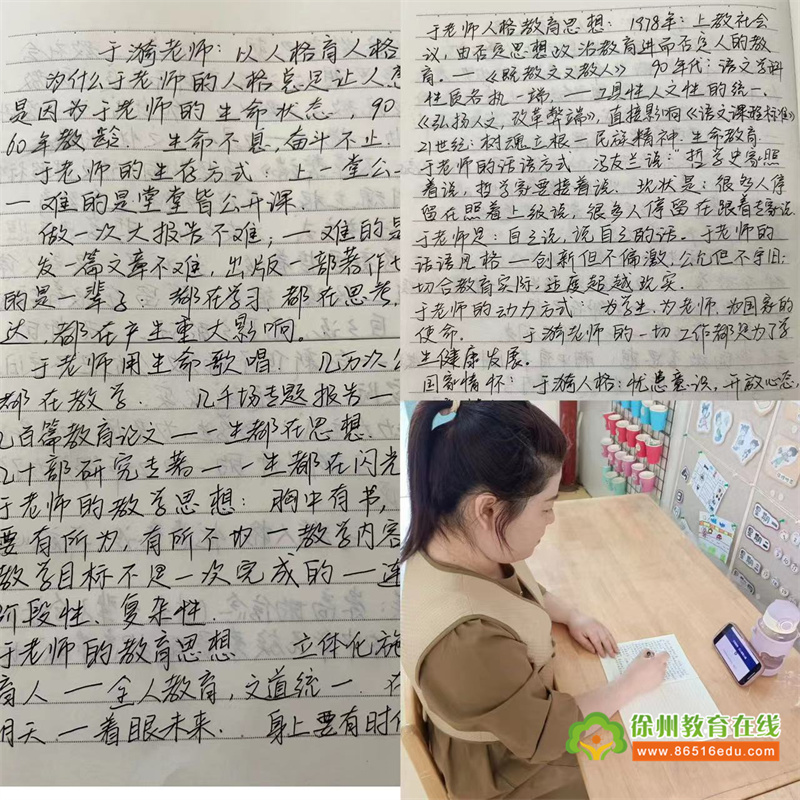 于漪老师：以人格育人格
为什么于老师的人格总是让人
是因为于老师的生命状态，90
60年教龄. 生命不息,奋斗不止.
于老师的生存方式：上一堂公
一难的是堂堂皆公开课.
做一次大报告不难；一难的是
发一篇文章不难，出版一部著作也
的是一辈子：都在学习.都在思考，
达，都在产生重大影响。
于老师用生命歌唱. 几万次公
都在教学. 几千场专题报告一
几百篇教育论文一一生都在思想.
几十部研究专著一一生都在闪光
于老师的教学思想：胸中有书，
要有所为，有所不为一教学内容
教学目标不是一次完成的一连
阶段性、复杂性.
于老师的教育思想 立体化施
育人一全人教育，文道统一. 在
明天.一着眼未来.. 身上要有时代
于老师人格教育思想：1978年：上教社会
议，由否定思想政治教育进而否定人的教
育.一《既教文又教人》 90年代：语文学科
性质各执一端，一工具性人文性的统一.
《弘扬人文，改革弊端》，直接影响《语文课程标准》
21世纪：树魂立根一民族精神.生命教育.
于老师的话语方式 冯友兰说：“哲学史家照
着说，哲学家要接着说. 现状是：很多人停
留在照着上级说，很多人停留在跟着专家说.
于老师是：自己说，说自己的话。于老师的
话语风格一创新但不偏激，公允但不守旧.
切合教育实际，适度超越现实.
于老师的动力方式：为学生，为老师，为国家的
使命. 于漪老师的一切工作都是为了学
生健康发展。
国家情怀：于漪人格：忧患意识，开放心态，
徐州教育在线
www.86516edu.com